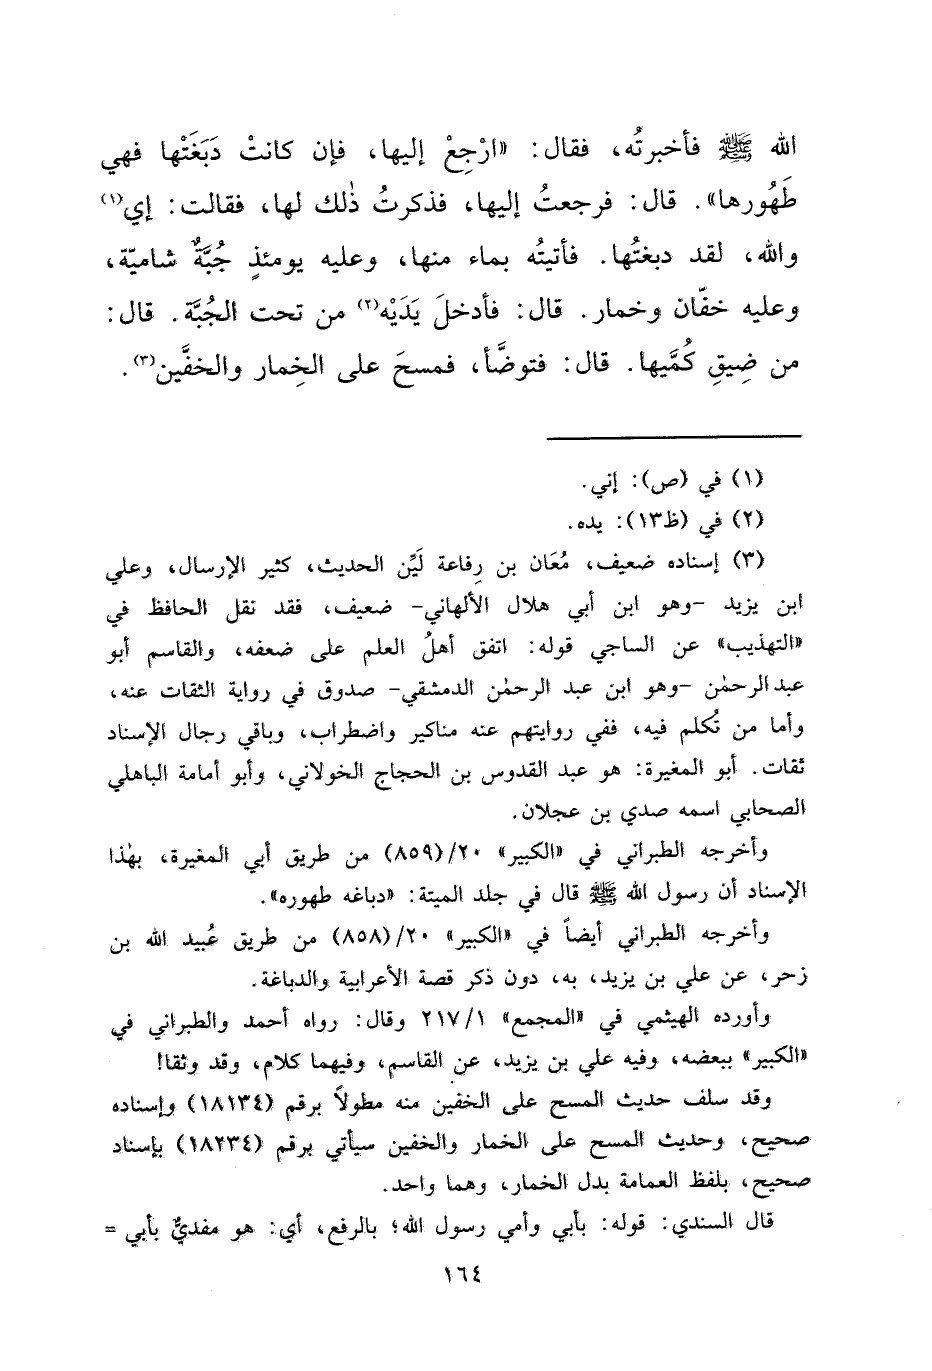 الله ﷺ فأخبرتُه، فقال: «ارْجِعْ إليها، فإن كانتْ دَبَغَتْها فهي
طَهُورها». قال: فرجعتُ إليها، فذكرتُ ذٰلك لها، فقالت: إي(١)
والله، لقد دبغتُها. فأتيتُه بماء منها، وعليه يومئذٍ جُبَّةٌ شاميّة،
وعليه خفّان وخمار. قال: فأدخلَ يَدَيْه(٢) من تحت الجُبَّة. قال:
من ضِيقِ كُمَّيها. قال: فتوضَّأ، فمسحَ على الخِمار والخفَّين(٣).
(١) في (ص): إني.
(٢) في (ظ١٣): يده.
(٣) إسناده ضعيف، مُعَان بن رِفاعة لَيِّن الحديث، كثير الإرسال، وعلي
ابن يزيد -وهو ابن أبي هلال الألهاني- ضعيف، فقد نقل الحافظ في
«التهذيب» عن الساجي قوله: اتفق أهلُ العلم على ضعفه، والقاسم أبو
عبدالرحمٰن -وهو ابن عبد الرحمٰن الدمشقي- صدوق في رواية الثقات عنه،
وأما من تُكلم فيه، ففي روايتهم عنه مناكير واضطراب، وباقي رجال الإسناد
ثقات. أبو المغيرة: هو عبد القدوس بن الحجاج الخولاني، وأبو أمامة الباهلي
الصحابي اسمه صدي بن عجلان.
وأخرجه الطبراني في «الكبير» ٢٠/(٨٥٩) من طريق أبي المغيرة، بهٰذا
الإسناد أن رسول الله ﷺ قال في جلد الميتة: «دباغه طهوره».
وأخرجه الطبراني أيضاً في «الكبير» ٢٠/(٨٥٨) من طريق عُبيد الله بن
زحر، عن علي بن يزيد، به، دون ذكر قصة الأعرابية والدباغة.
وأورده الهيثمي في «المجمع» ٢١٧/١ وقال: رواه أحمد والطبراني في
«الكبير» ببعضه، وفيه علي بن يزيد، عن القاسم، وفيهما كلام، وقد وثقا!
وقد سلف حديث المسح على الخفين منه مطولاً برقم (١٨١٣٤) وإسناده
صحيح، وحديث المسح على الخمار والخفين سيأتي برقم (١٨٢٣٤) بإسناد
صحيح، بلفظ العمامة بدل الخمار، وهما واحد.
قال السندي: قوله: بأبي وأمي رسول الله؛ بالرفع، أي: هو مفديٌّ بأبي =
١٦٤